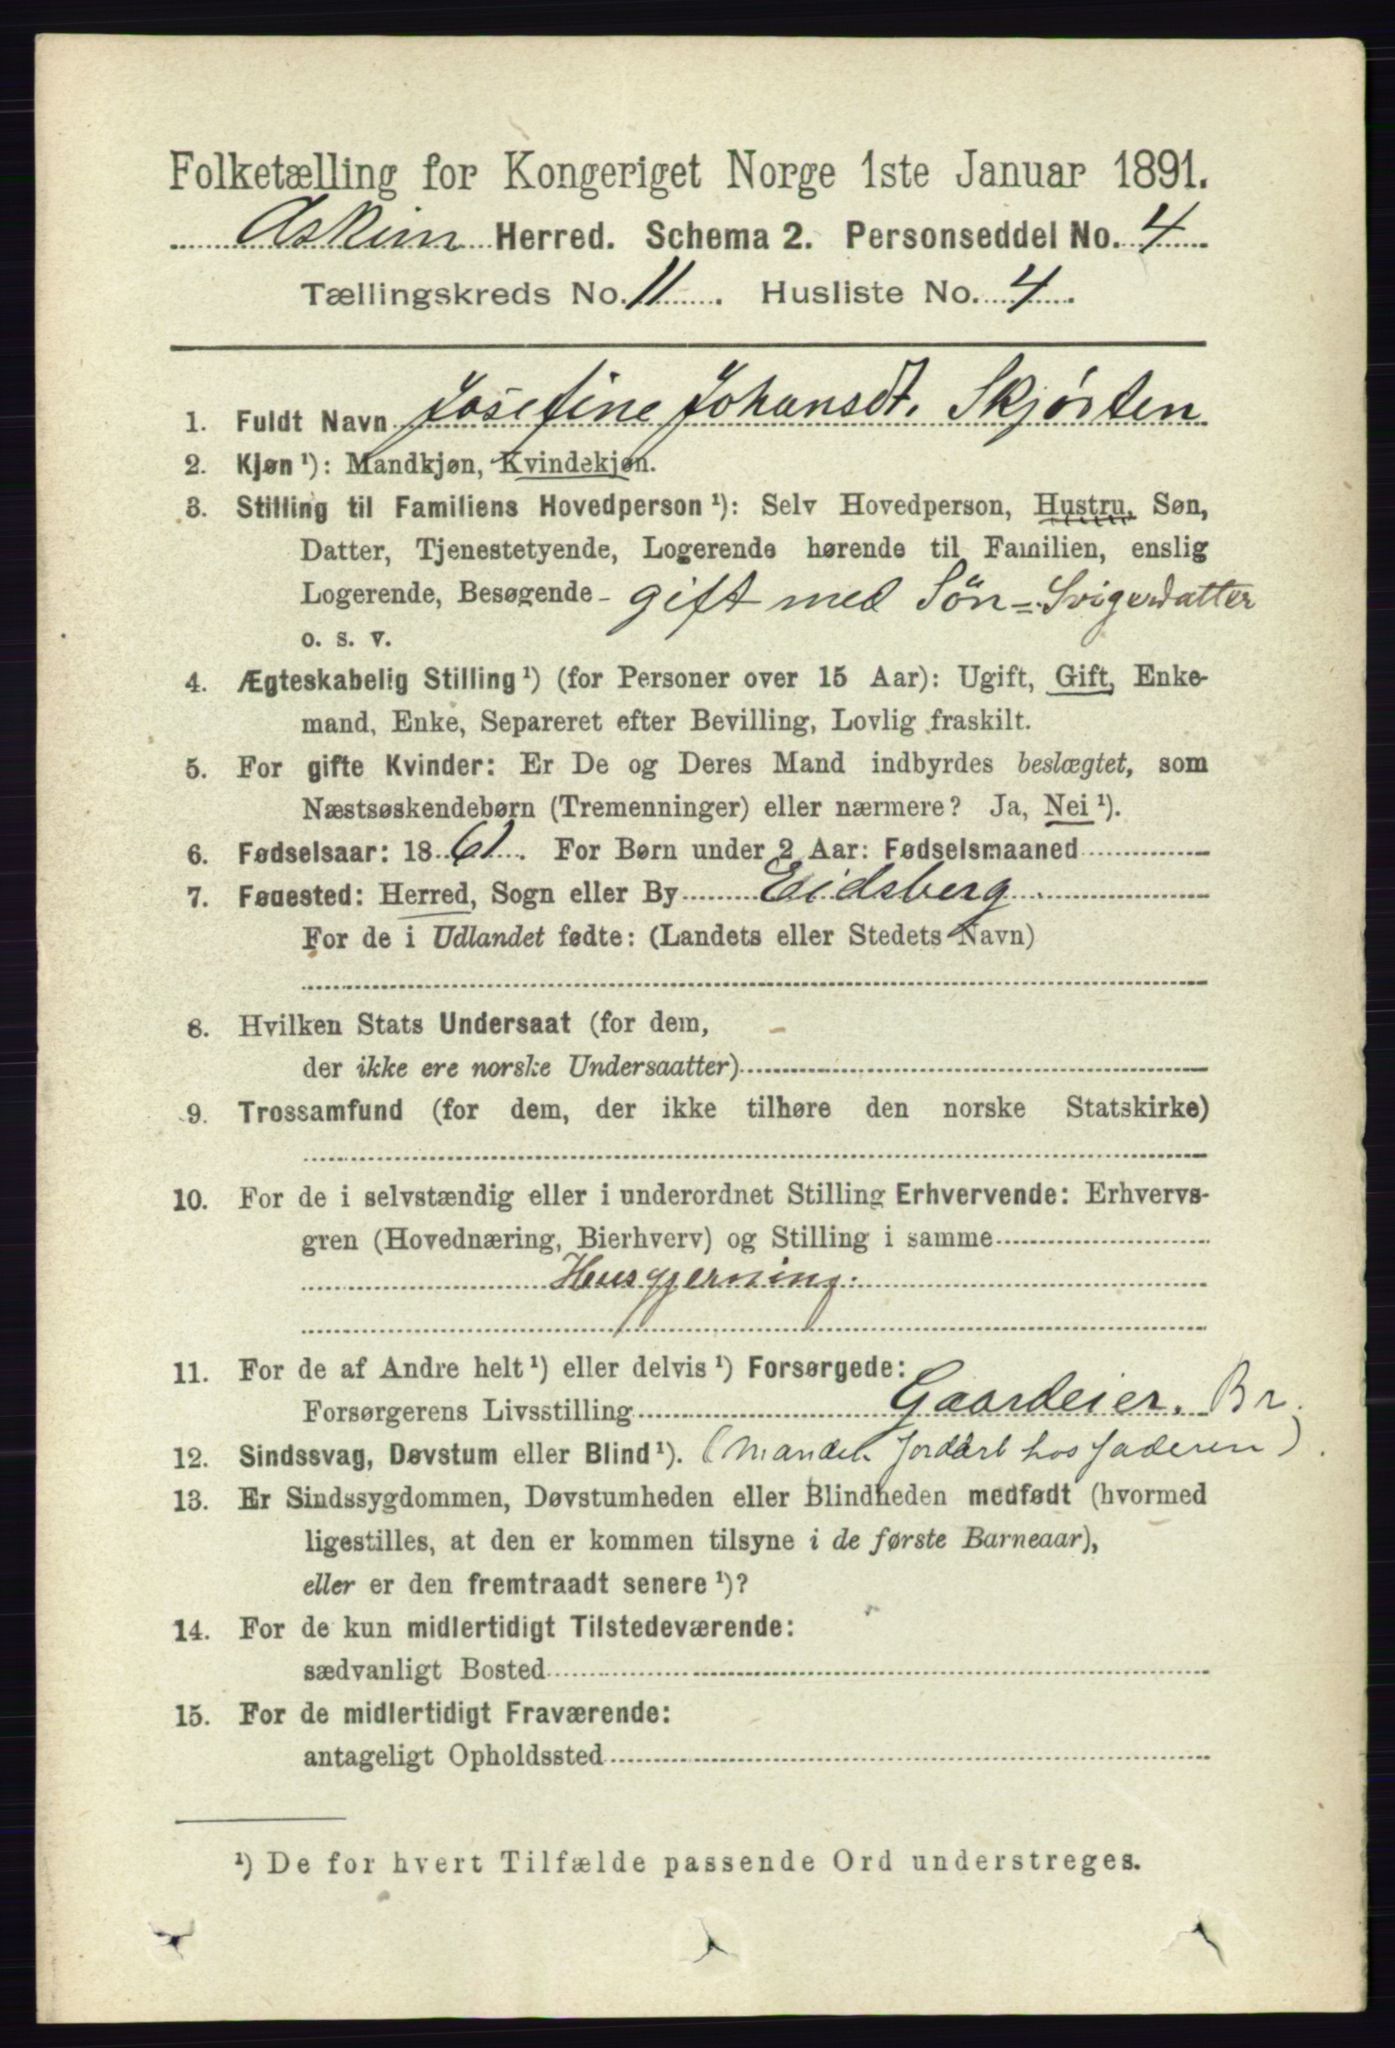 Folketælling for Kongeriget Norge 1ste Januar 1891.
Askim Herred. Schema 2. Personseddel No. 4
Tællingskreds No. 11. Husliste No. 4.
1. Fuldt Navn Josefine Johansdt. Skjørten
2. Kjøn ¹): Mandkjøn, Kvindekjøn.
3. Stilling til Familiens Hovedperson ¹): Selv Hovedperson, Hustru, Søn,
Datter, Tjenestetyende, Logerende hørende til Familien, enslig
Logerende, Besøgende - gift med Sön = Svigerdatter
o. s. v.
4. Ægteskabelig Stilling ¹) (for Personer over 15 Aar): Ugift, Gift, Enke-
mand, Enke, Separeret efter Bevilling, Lovlig fraskilt.
5. For gifte Kvinder: Er De og Deres Mand indbyrdes beslægtet, som
Næstsøskendebørn (Tremenninger) eller nærmere? Ja, Nei ¹).
6. Fødselsaar: 1861. For Børn under 2 Aar: Fødselsmaaned
7. Fødested: Herred, Sogn eller By Eidsberg
For de i Udlandet fødte: (Landets eller Stedets Navn)
8. Hvilken Stats Undersaat (for dem,
der ikke ere norske Undersaatter)
9. Trossamfund (for dem, der ikke tilhøre den norske Statskirke)
10. For de i selvstændig eller i underordnet Stilling Erhvervende: Erhvervs-
gren (Hovednæring, Bierhverv) og Stilling i samme
Husgjerning.
11. For de af Andre helt ¹) eller delvis ¹) Forsørgede:
Forsørgerens Livsstilling Gaardeier. Br.
12. Sindssvag, Døvstum eller Blind ¹). (Mandel. Jordarb hos faderen).
13. Er Sindssygdommen, Døvstumheden eller Blindheden medfødt (hvormed
ligestilles, at den er kommen tilsyne i de første Barneaar),
eller er den fremtraadt senere ¹)?
14. For de kun midlertidigt Tilstedeværende:
sædvanligt Bosted
15. For de midlertidigt Fraværende:
antageligt Opholdssted
¹) De for hvert Tilfælde passende Ord understreges.